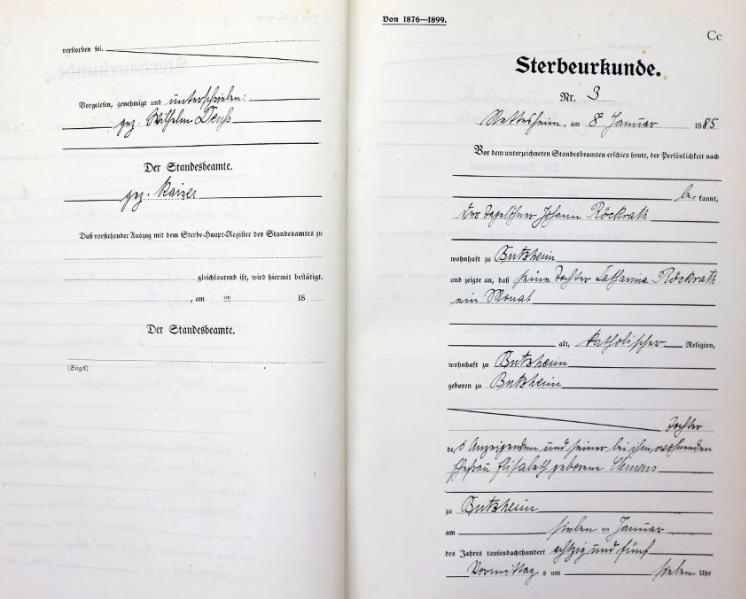 verstorben sei.
Vorgelesen, genehmigt und unterschrieben:
gez. Wilhelm
Der Standesbeamte.
gez. Kaiser
Daß vorstehender Auszug mit dem Sterbe-Haupt-Register des Standesamtes zu
gleichlautend ist, wird hiermit bestätigt.
, am ten 18
Der Standesbeamte.
(Siegel)
Von 1876—1899.
Cc
Sterbeurkunde.
Nr. 3
Nettesheim, am 8 Januar 1885
Vor dem unterzeichneten Standesbeamten erschien heute, der Persönlichkeit nach
be kannt,
der Tagelöhner Johann Röckrath
wohnhaft zu Butzheim
und zeigte an, daß seine Tochter Catharina Röckrath
ein Monat
alt, katholischer Religion,
wohnhaft zu Butzheim
geboren zu Butzheim
Tochter
des Anzeigenden und seiner bei ihm wohnenden
Ehefrau Elisabeth geborene Clemens
zu Butzheim
am sieben ten Januar
des Jahres tausendachthundert achtzig und fünf
Vormittags um sieben Uhr